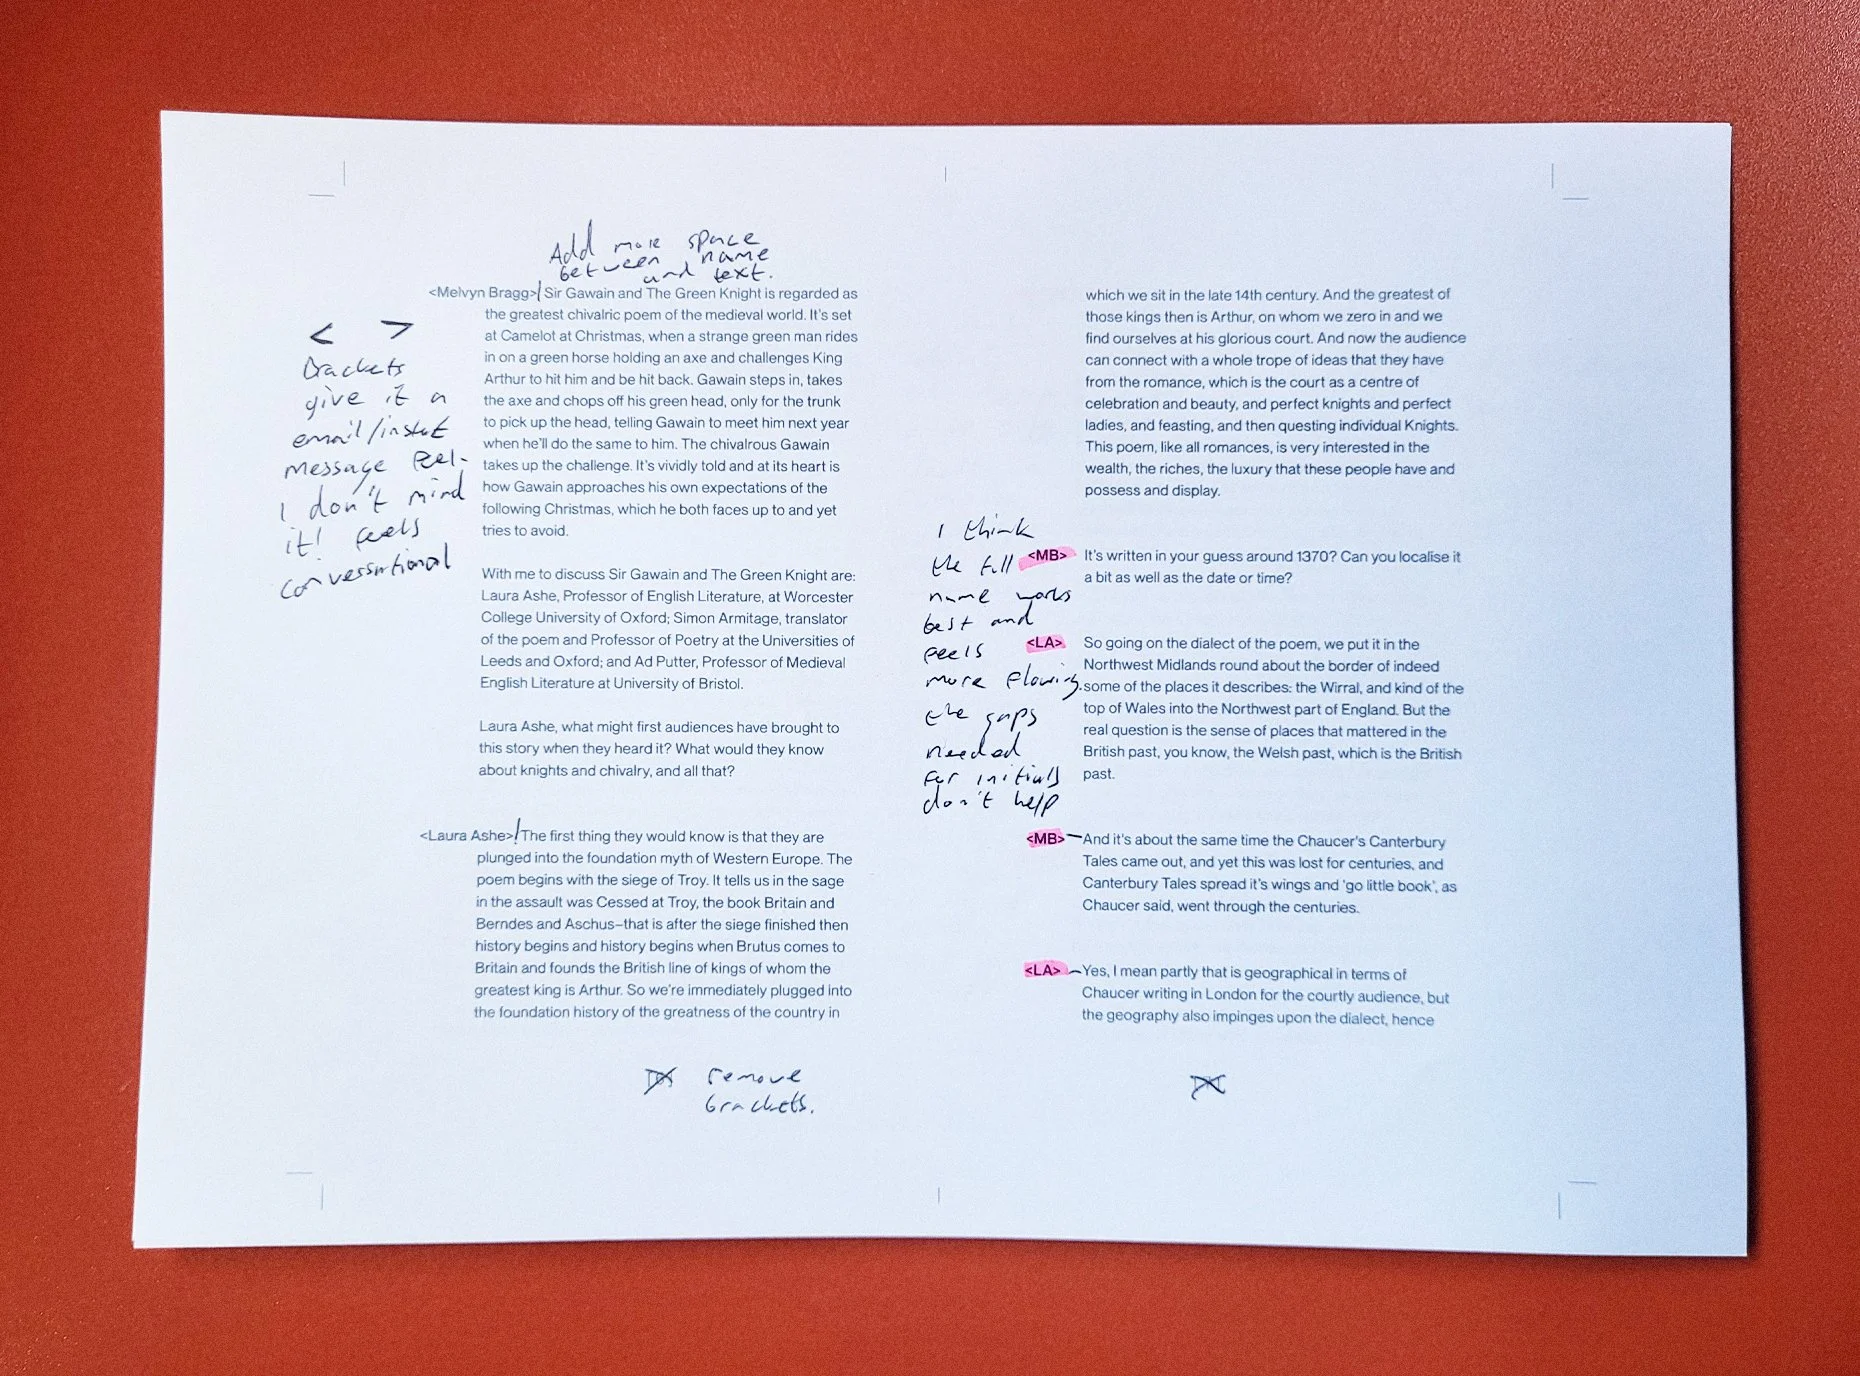 Add more space
between name
and text.
<Melvyn Bragg> Sir Gawain and The Green Knight is regarded as
the greatest chivalric poem of the medieval world. It's set
at Camelot at Christmas, when a strange green man rides
in on a green horse holding an axe and challenges King
Arthur to hit him and be hit back. Gawain steps in, takes
the axe and chops off his green head, only for the trunk
to pick up the head, telling Gawain to meet him next year
when he'll do the same to him. The chivalrous Gawain
takes up the challenge. It's vividly told and at its heart is
how Gawain approaches his own expectations of the
following Christmas, which he both faces up to and yet
tries to avoid.
< >
brackets
give it a
email/instat
message feel-
I don't mind
it! feels
conversational
With me to discuss Sir Gawain and The Green Knight are:
Laura Ashe, Professor of English Literature, at Worcester
College University of Oxford; Simon Armitage, translator
of the poem and Professor of Poetry at the Universities of
Leeds and Oxford; and Ad Putter, Professor of Medieval
English Literature at University of Bristol.
Laura Ashe, what might first audiences have brought to
this story when they heard it? What would they know
about knights and chivalry, and all that?
<Laura Ashe> The first thing they would know is that they are
plunged into the foundation myth of Western Europe. The
poem begins with the siege of Troy. It tells us in the sage
in the assault was Cessed at Troy, the book Britain and
Berndes and Aschus–that is after the siege finished then
history begins and history begins when Brutus comes to
Britain and founds the British line of kings of whom the
greatest king is Arthur. So we're immediately plugged into
the foundation history of the greatness of the country in
remove
brackets.
which we sit in the late 14th century. And the greatest of
those kings then is Arthur, on whom we zero in and we
find ourselves at his glorious court. And now the audience
can connect with a whole trope of ideas that they have
from the romance, which is the court as a centre of
celebration and beauty, and perfect knights and perfect
ladies, and feasting, and then questing individual Knights.
This poem, like all romances, is very interested in the
wealth, the riches, the luxury that these people have and
possess and display.
I think
the full
name works
best and
feels
more flowing.
the gaps
needed
for initials
don't help
<MB> It's written in your guess around 1370? Can you localise it
a bit as well as the date or time?
<LA> So going on the dialect of the poem, we put it in the
Northwest Midlands round about the border of indeed
some of the places it describes: the Wirral, and kind of the
top of Wales into the Northwest part of England. But the
real question is the sense of places that mattered in the
British past, you know, the Welsh past, which is the British
past.
<MB> And it's about the same time the Chaucer's Canterbury
Tales came out, and yet this was lost for centuries, and
Canterbury Tales spread it's wings and 'go little book', as
Chaucer said, went through the centuries.
<LA> Yes, I mean partly that is geographical in terms of
Chaucer writing in London for the courtly audience, but
the geography also impinges upon the dialect, hence